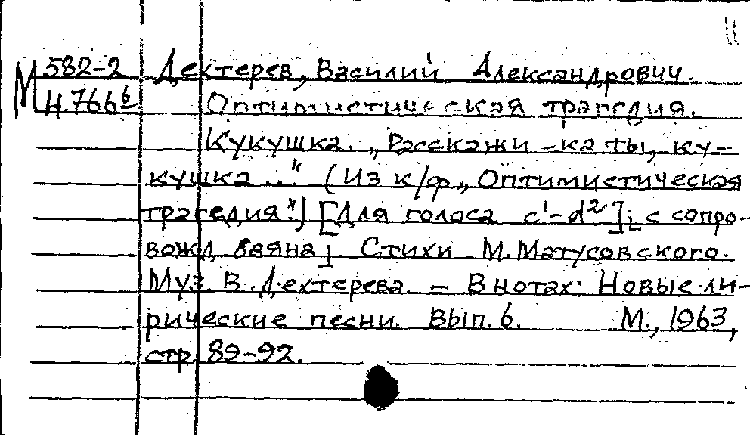 М 582-2 Дехтерев, Василий Александрович.
Н.766б Оптимистическая трагедия.
Кукушка. „Расскажи-ка ты, ку-
кушка..." (Из к/ф „Оптимистическая
трагедия".) [Для голоса c¹-d²]; с сопро-
вожд. баяна] Стихи М. Матусовского.
Муз. В. Дехтерева. – В нотах: Новые ли-
рические песни. Вып. 6. М., 1963,
стр. 89-92.